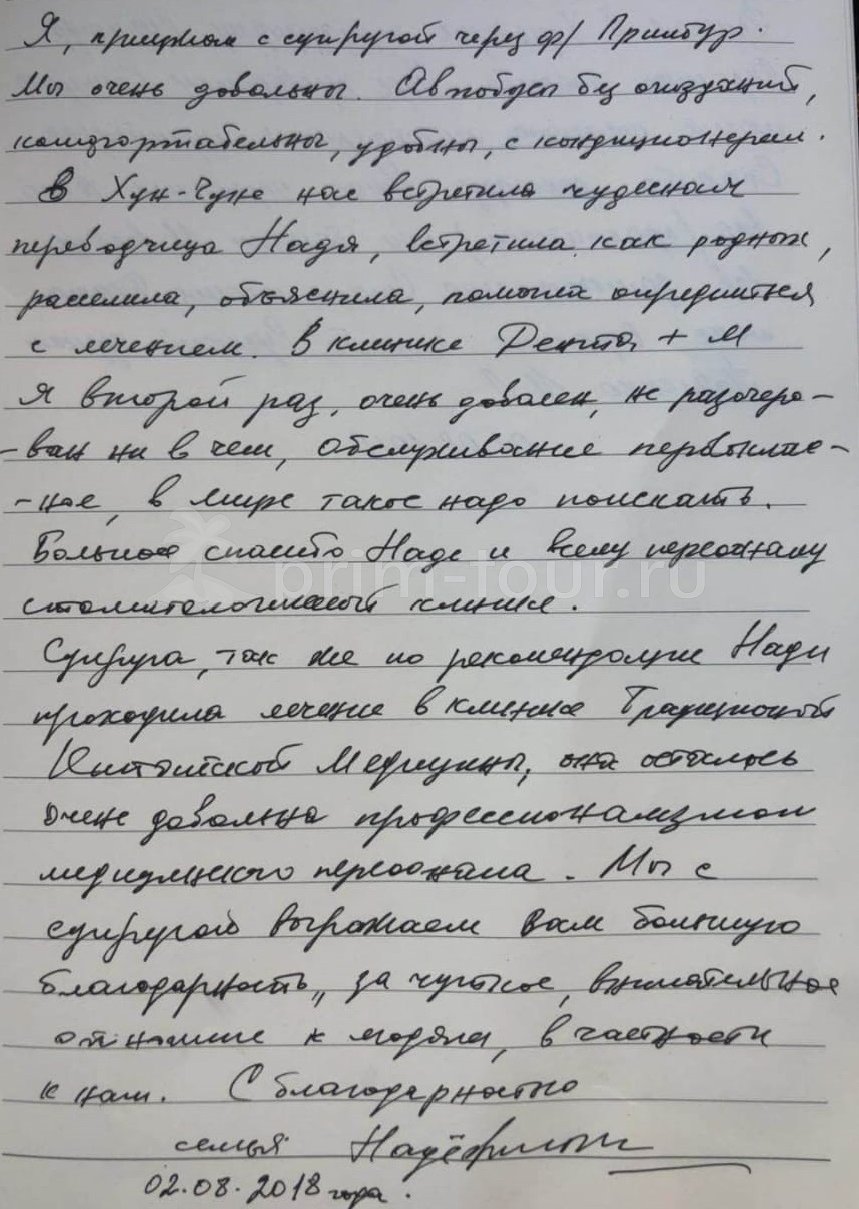 Я, приехал с супругой через ф/ Примтур.
Мы очень довольны. Автобусы без опозданий,
комфортабельны, удобны, с кондиционерам.
В Хун-Чуне нас встретила чудесная
переводчица Надя, встретила как родных,
расселила, объяснила, помогла определиться
с лечением. В клинике Дента + М
я второй раз, очень доволен, не разочаро-
-ван ни в чем, обслуживание первоклас-
-ное, в мире такое надо поискать.
Большое спасибо Наде и всему персоналу
стоматологической клинике.
prim-tour.ru
Супруга, так же по рекомендации Нади
проходила лечение в клинике Традиционной
Китайской Медицины, она осталась
очень довольна профессионализмом
медицинского персонала. Мы с
супругой выражаем Вам большую
благодарность, за чуткое, внимательное
отношение к людям, в частности
к нам. С благодарностью
семья
02.08.2018 года.